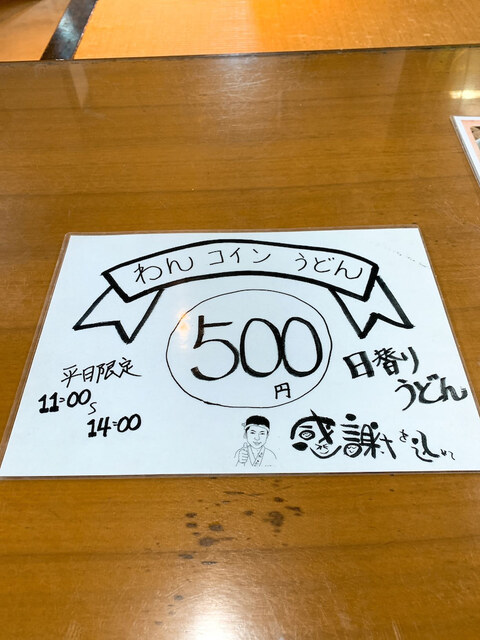 わん コイン うどん
500
円
平日限定
11:00
〜
14:00
日替り
うどん
感謝を込めて